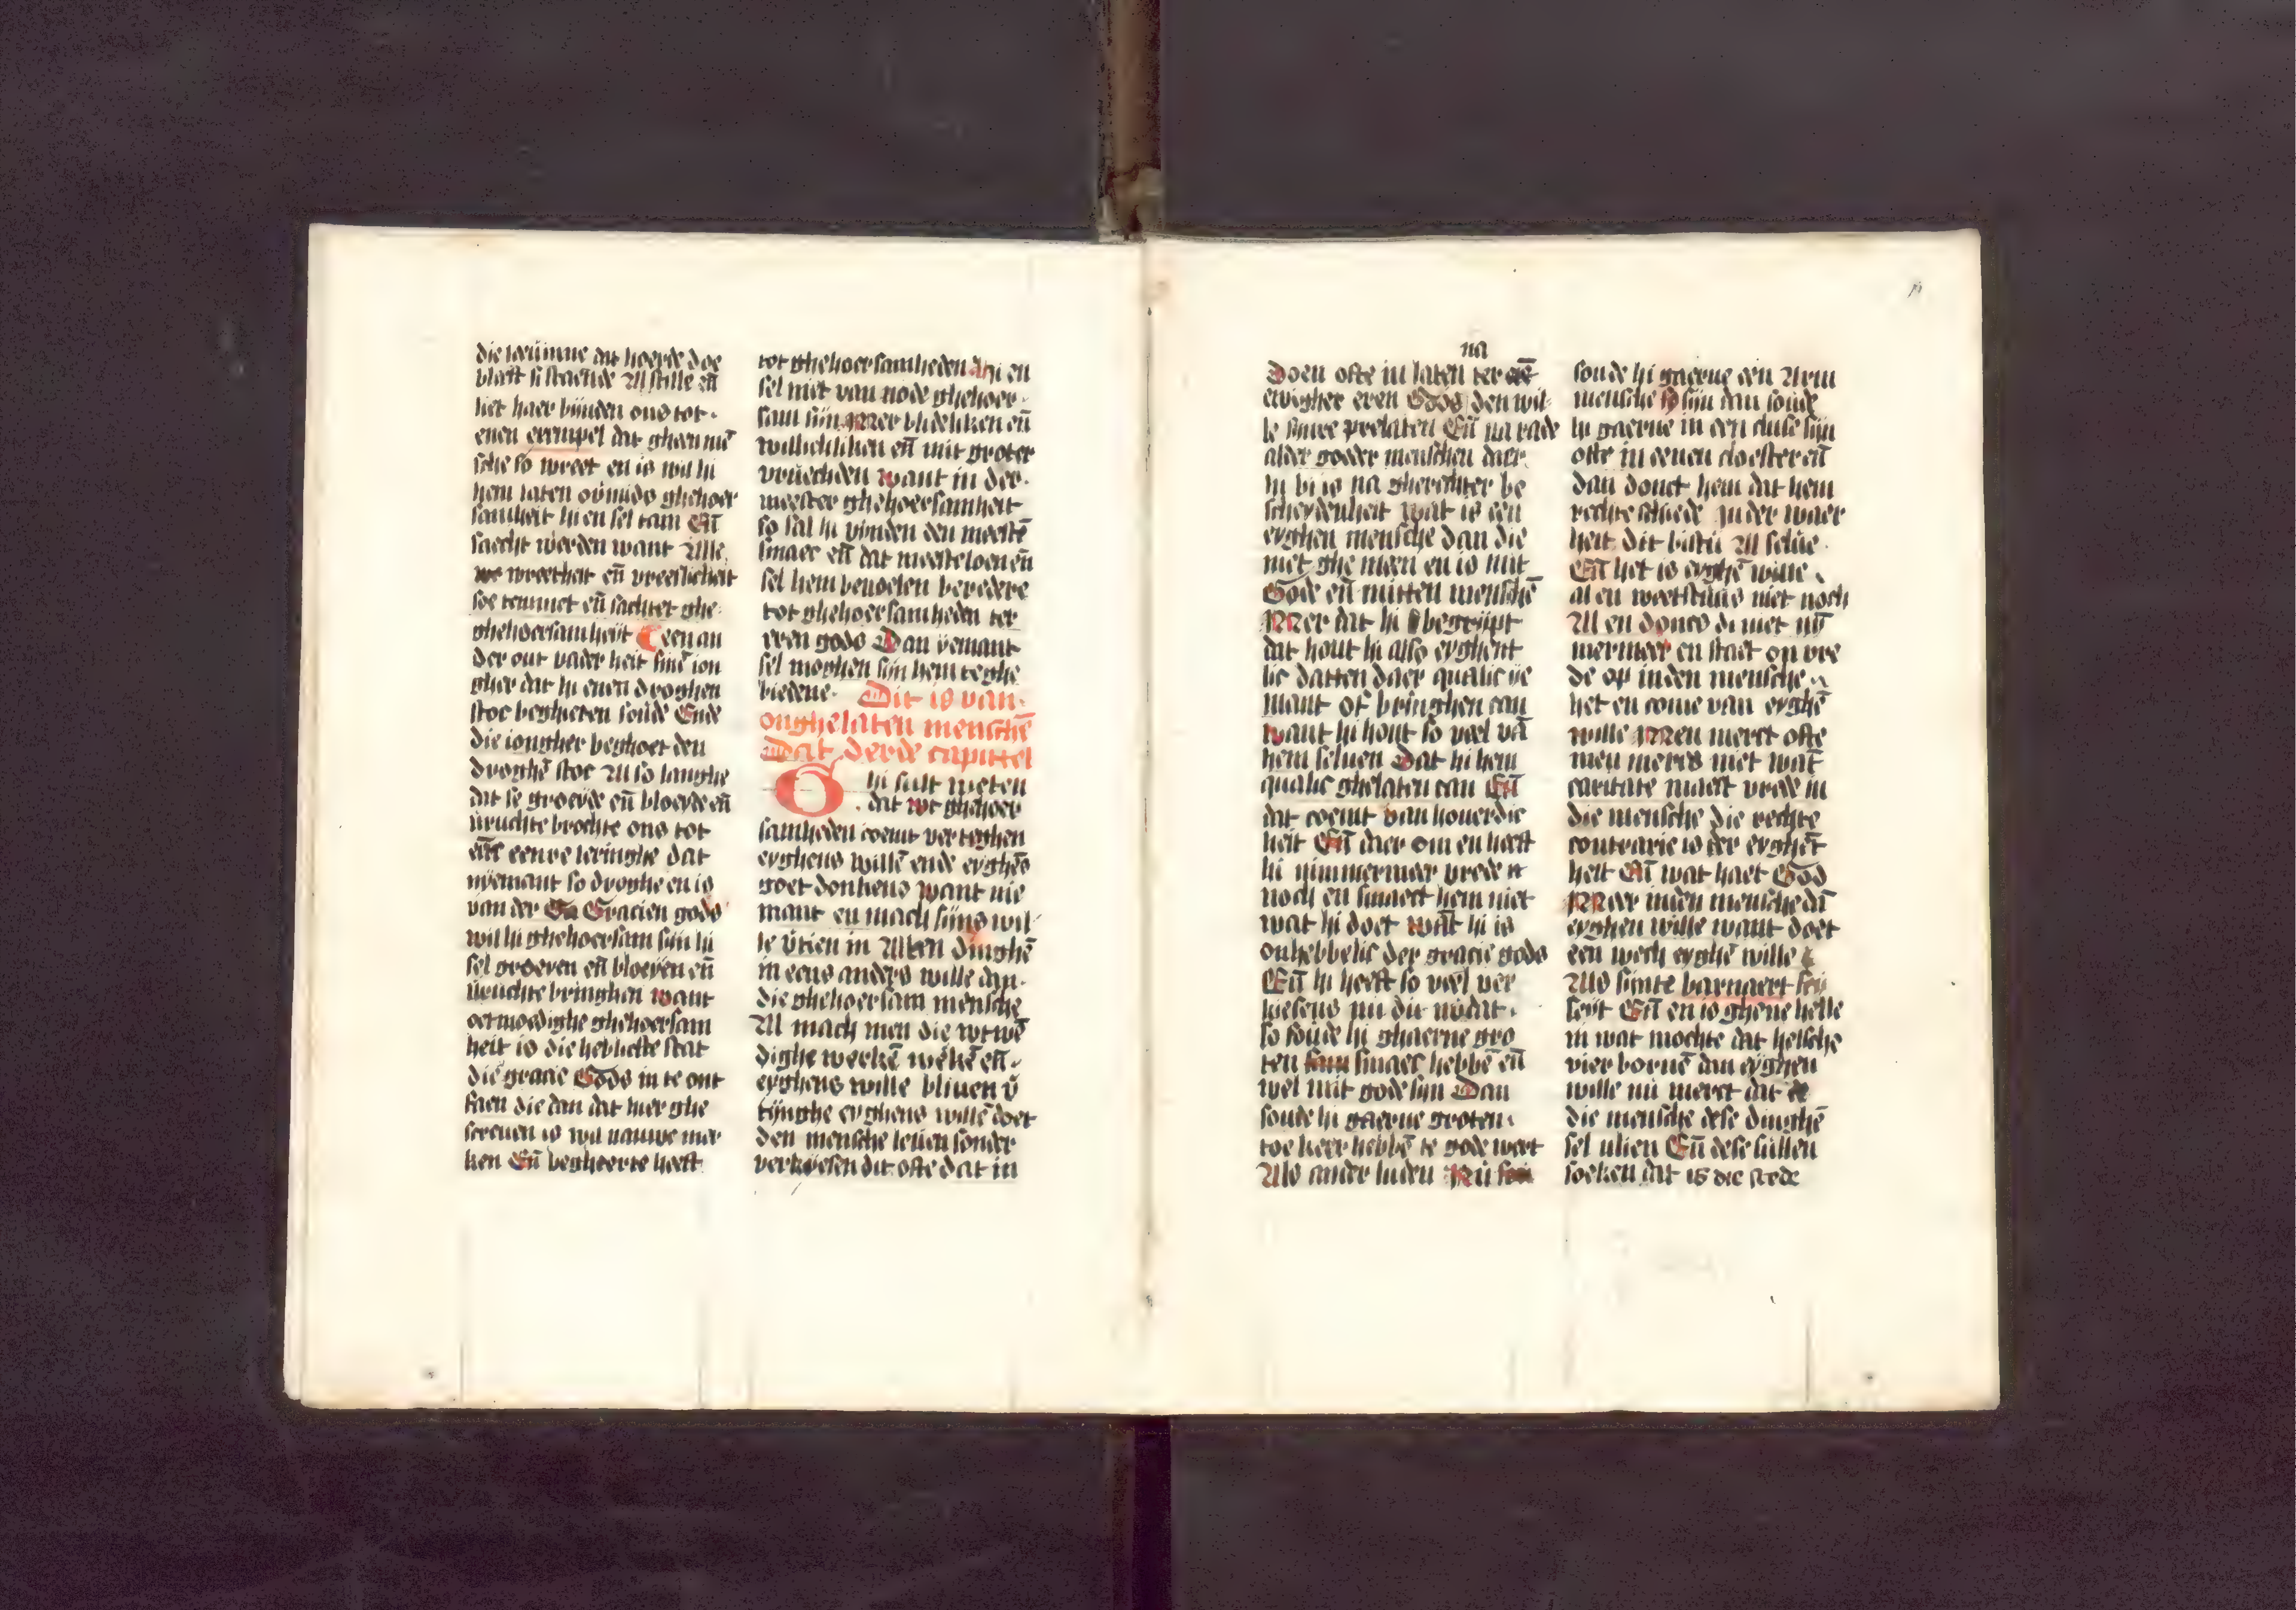 die leeuwinne dat hoerde doe
bleeff si staende Al stille eñ
liet haer bijnden ons tot
enen exempel dat gheen mē
sche so wreet en is wil hi
hem laten ov̄mids ghehoer
samheit hi en sel tam Eñ
saecht werden want Alle
wreetheit eñ vreeslicheit
soe temmet eñ sachtet ghe
ghehoersamheijt Een an
der out vader hiet sinē ion
gher dat hi enen droghen
stoc beghieten soude Ende
die iongher beghoet den
droghē stoc Al so langhe
dat he groeyde eñ bloeyde eñ
vruchte brochte ons tot
eenre leringhe dat
nyemant so droghe en is
van der Gracien gods
wil hi ghehoersam sijn hi
sel groeyen eñ bloeyen eñ
vruchte bringhen want
oetmoedighe ghehoersam
heit is die hebbelicste stat
die gracie Gods in te ont
faen die dan dat hier ghe
screuen is wil nauwe mer
ken Eñ begheerte heeft
tot ghehoersamheden hi en
sel niet van node ghehoer
sam sijn Mer blidelikken eñ
willichliken eñ mit groter
vruechden want in der
meester ghehoersamheit
so sal hi vijnden den meestē
smaec eñ dat meeste loen eñ
sel hem beuoelen beredere
tot ghehoersamheden ter
eren gods Dan yemant
sel moghen sijn hem te ghe
biedene Dit is van
onghelaten menschē
Dat derde capittel
Ghi sult weten
dat wt ghehoer
samheden coemt vertyghen
eyghens willē ende eyghēs
goet donkens want nie
mant en mach sijns wil
le v̄tien in Allen dinghē
in eens anders wille dan
die ghehoersam mensche
Al mach men die wtwē
dighe werkē wēkē eñ
eyghens wille bliuen v̄
tijnghe eyghens willē doet
den mensche leuen sonder
verkyesen dit ofte dat in
na
Doen ofte in laten ter
ewigher eren Gods den wil
le sinre prelaten Eñ na rade
alder goeder menschen daer
hi bi is na gherechter be
scheydenheit wat is een
eyghen mensche dan die
niet ghemeen en is mit
Gode eñ mitten menschē
Mer dat hi begrijpt
dat hout hi also eyghent
lic datten daer qualic ye
mant of bringhen can
want hi hout so veel vā
hem seluen Dat hi hem
qualic ghelaten can Eñ
dat coemt van houerdie
heit Eñ daer om en heeft
hi nimmermeer vrede
noch en smaect hem niet
wat hi doet wāt hi is
onhebbelic der gracie gods
Eñ hi heeft so veel ver
kiesens nu dit nv dat
so soude hi ghaerne gro
ten smaec hebbē eñ
wel mit gode sijn Dan
soude hi gaerne groten
toe keer hebbē te gode wert
Als ander luden Nu
soude hi gaerne een Arm
mensche sijn dan soude
hi gaerne in een cluse sijn
ofte in eenen cloester eñ
dan donct hem dat hem
rechte schiede in der waer
heit dit bistu Al selue
Eñ het is eyghē wille
al en weetstuus niet noch
Al en donct di niet nv̄
mermeer en staet on vre
de op inden mensche
het en come van eyghē
wille Men merct ofte
men mercs niet wat
caritate maect vrede in
die mensche die rechte
contrarie is der eyghē
heit Eñ wat haet God
Meer inden mensche dā
eyghen wille want doet
een wech eyghē wille
Als sinte barnaert
seyt Eñ en is ghene helle
in wat mochte dat helsche
vier bornē dan eyghen
wille nu merct dat
die mensche dese dinghē
sel vlien Eñ dese sullen
soeken dat is die stede